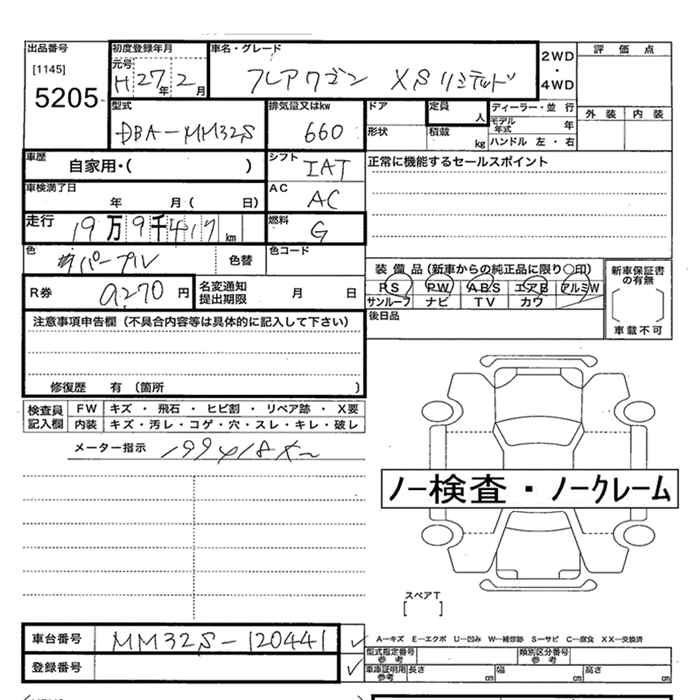 出品番号
[1145]
5205
初度登録年月
元号
H 27年 2月
車名・グレード
フレアワゴン XSリミテッド
2WD
・
4WD
評価点
外装 内装
型式
DBA-MM32S
排気量又はkw
660
ドア
形状
定員
人
積載
kg
ディーラー・並行
モデル年式 年
ハンドル 左・右
車歴
自家用・( )
シフト
IAT
正常に機能するセールスポイント
車検満了日
年 月( 日)
AC
AC
走行
19万9千417km
燃料
G
色
パープル
色替
色コード
R券
9,270円
名変通知
提出期限
月 日
装備品(新車からの純正品に限り○印)
PS PW ABS エアB アルミW
サンルーフ ナビ TV カワ
新車保証書
の有無
車載不可
後日品
注意事項申告欄(不具合内容等は具体的に記入して下さい)
修復歴 有(箇所 )
検査員
記入欄
FW キズ・飛石・ヒビ割・リペア跡・X要
内装 キズ・汚レ・コゲ・穴・スレ・キレ・破レ
メーター指示 199418K
ノー検査・ノークレーム
スペアT
[ ]
車台番号
MM32S-120441
登録番号
A―キズ E―エクボ U―凹み W―補修跡 S―サビ C―腐食 XX―交換済
型式指定番号
参考
類別区分番号
参考
車庫証明用
参考
長さ cm
幅 cm
高さ cm